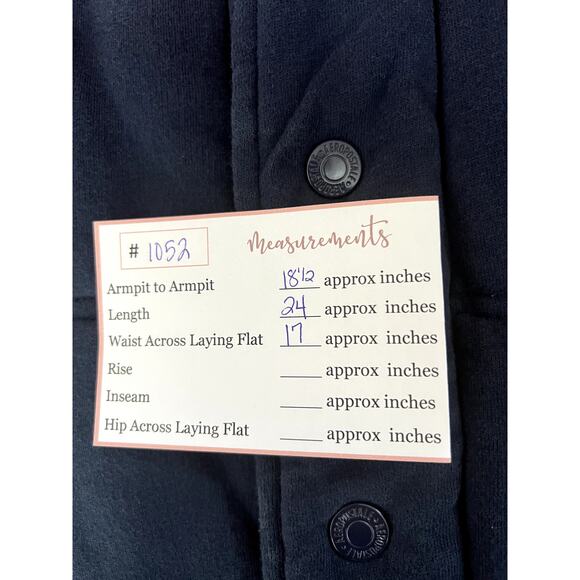 AEROPOSTALE • AEROPOSTALE •
# 1052
Measurements
Armpit to Armpit 18 1/2 approx inches
Length 24 approx inches
Waist Across Laying Flat 17 approx inches
Rise ____ approx inches
Inseam ____ approx inches
Hip Across Laying Flat ____ approx inches
AEROPOSTALE • AEROPOSTALE •